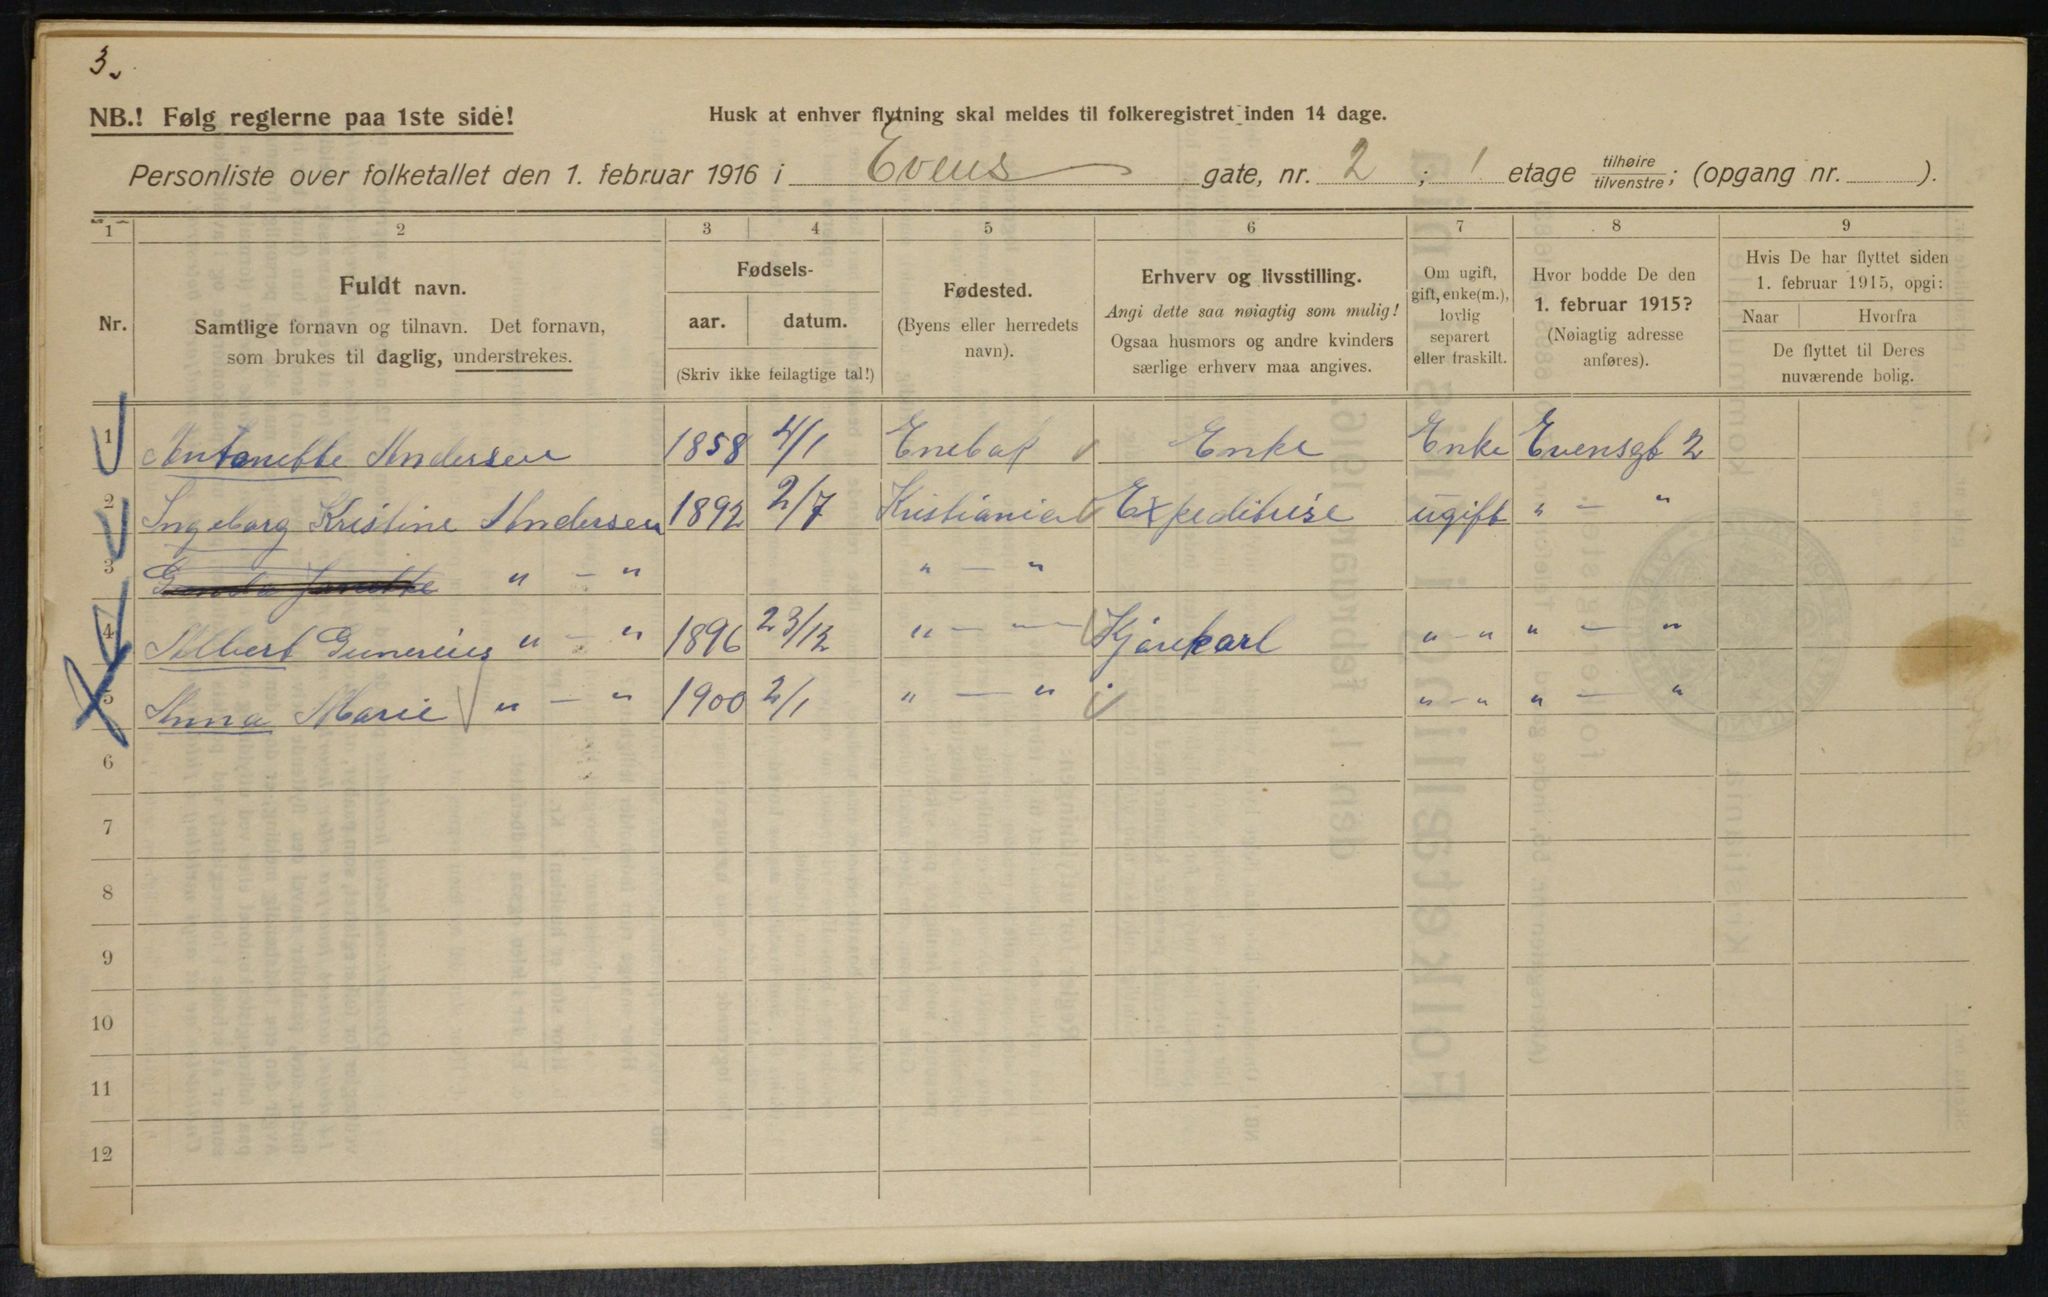 3.
NB.! Følg reglerne paa 1ste side!
Husk at enhver flytning skal meldes til folkeregistret inden 14 dage.
Personliste over folketallet den 1. februar 1916 i Evens gate, nr. 2; 1 etage tilhøire/tilvenstre; (opgang nr. ).
1 2 3 4 5 6 7 8 9
Nr.
Fuldt navn.
Samtlige fornavn og tilnavn. Det fornavn,
som brukes til daglig, understrekes.
Fødsels-
aar. datum.
(Skriv ikke feilagtige tal!)
Fødested.
(Byens eller herredets
navn).
Erhverv og livsstilling.
Angi dette saa nøiagtig som mulig!
Ogsaa husmors og andre kvinders
særlige erhverv maa angives.
Om ugift,
gift, enke(m.),
lovlig
separert
eller fraskilt.
Hvor bodde De den
1. februar 1915?
(Nøiagtig adresse
anføres).
Hvis De har flyttet siden
1. februar 1915, opgi:
Naar Hvorfra
De flyttet til Deres
nuværende bolig.
1 Antonette Andersen 1858 4/1 Enebak Enke Enke Evensgt 2
2 Ingeborg Kristine Andersen 1892 2/7 Kristiania Expeditrise ugift " — "
3 " — " " — "
4 Albert Gunerius " — " 1896 23/12 " — " Kjørekarl " — " " — "
5 Anna Marie " — " 1900 2/1 " — " " — " " — "
6
7
8
9
10
11
12